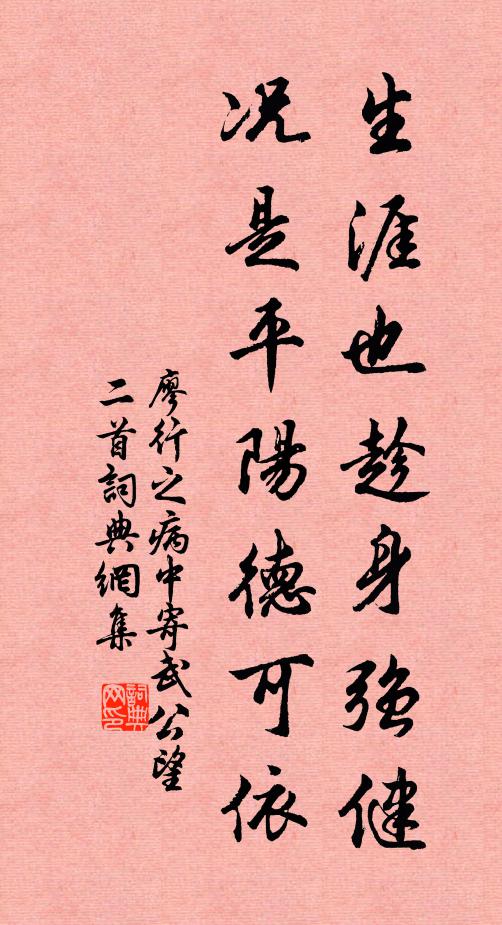 生涯也趁身強健
況是平陽德可依
廖行之病中寄武公望
二首詞典網集
詞典網印